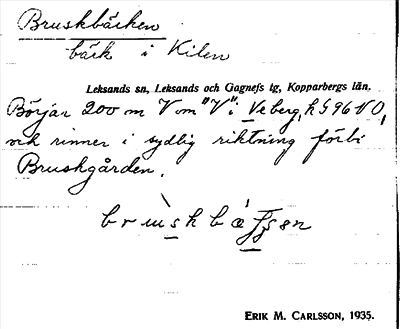 Bruskbäcken
bäck i Kilen
Leksands sn, Leksands och Gagnefs tg, Kopparbergs län.
Börjar 200 m V om "V" i Veberg, h G 96 NO,
och rinner i sydlig riktning förbi
Bruskgården.
ERIK M. CARLSSON, 1935.